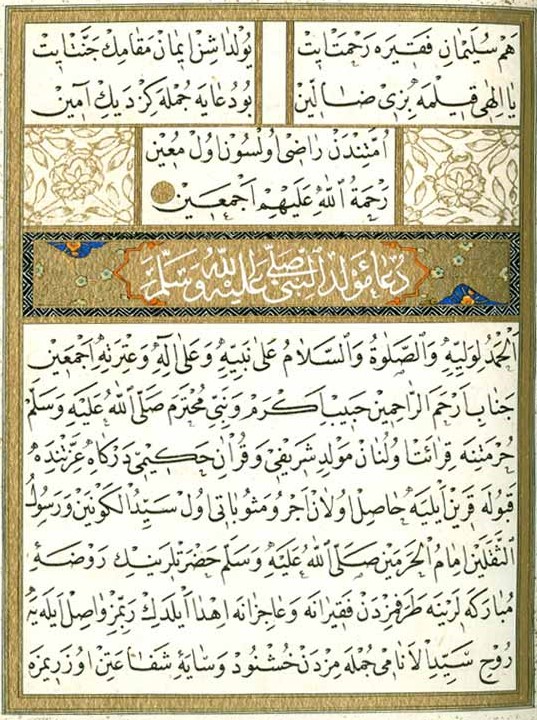 هم سليمان فقيره رحمت ايت
يولداش ايمان مقامك جنت ايت
يا الهى قيلمه بزى ضالين
بو دعايه جمله كز ديك آمين
امتندن راضى اولسون اول معين
رحمة الله عليهم اجمعين
دعاء مولد النبى صلى الله عليه وسلم
الحمد لوليه والصلوة والسلام على نبيه وعلى اله وعترته اجمعين
جناب ارحم الراحمين حبيب اكرم ونبى محترم صلى الله عليه وسلم
حرمتنه قرائت اولنان مولد شريفى وقرآن حكيمى دركاه عزتنده
قبوله قرين ايليه حاصل اولان اجر ومثوباتى اول سيد الكونين ورسول
الثقلين امام الحرمين صلى الله عليه وسلم حضرتلرينك روضۀ
مباركه لرينه طرفمزدن فقيرانه وعاجزانه اهدا ايلدك ربمز واصل ايليه
روح سيد الانامى جمله مزدن خشنود وسايۀ شفاعتن اوزريمزه